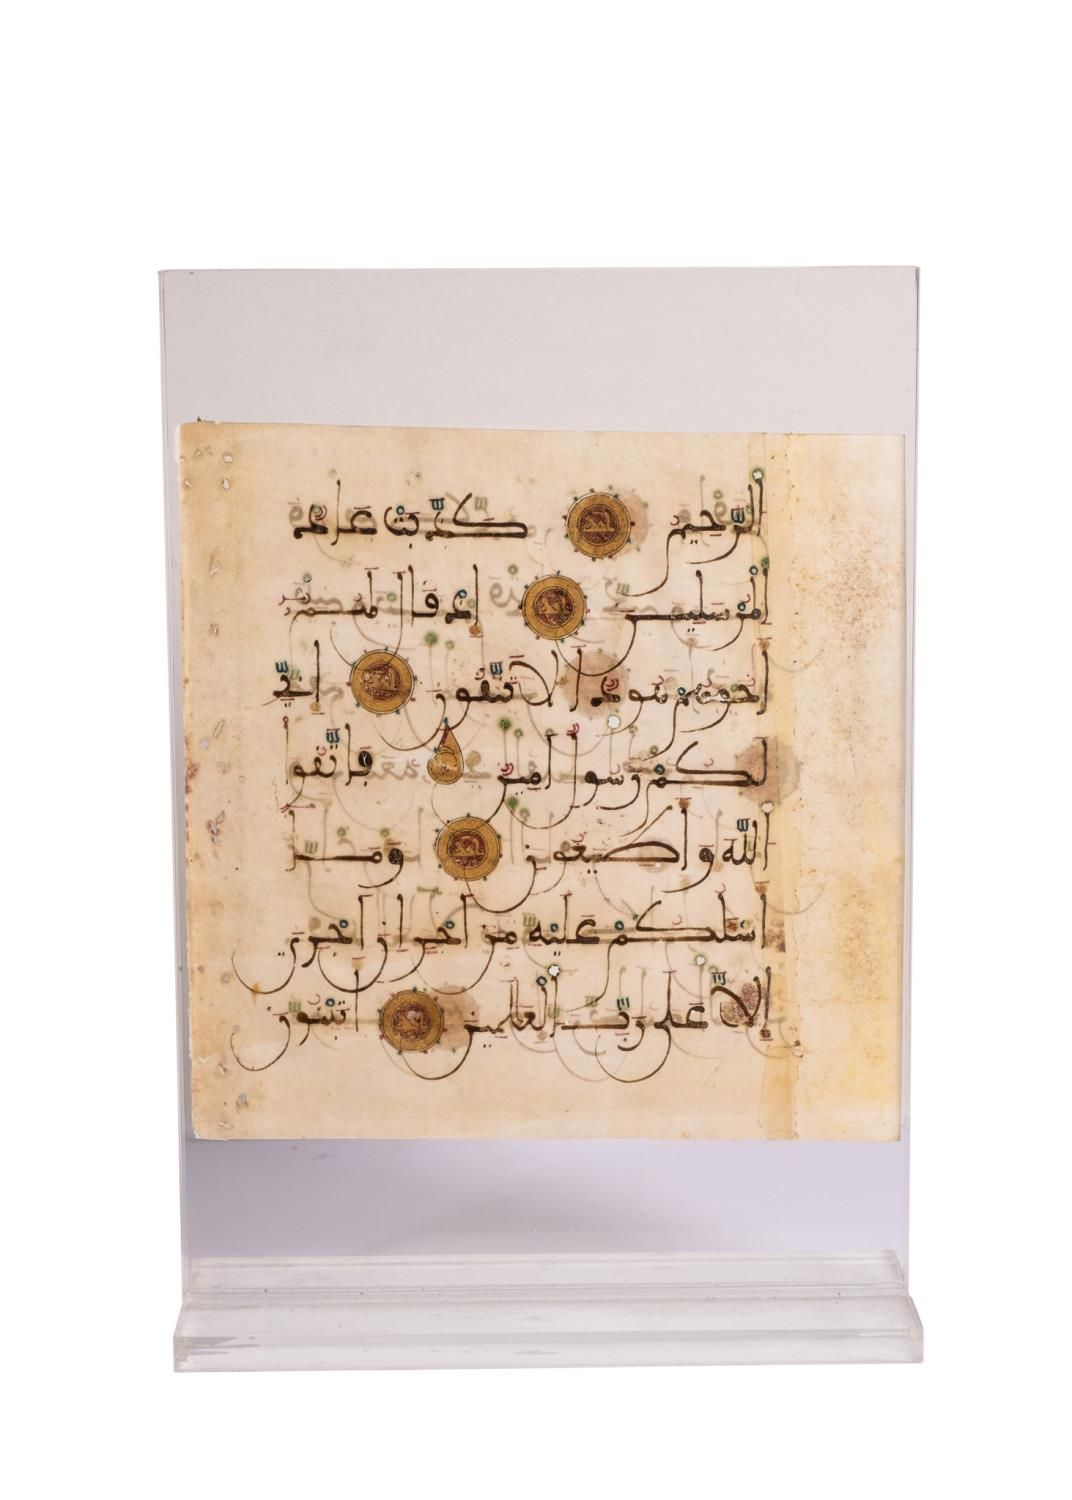 الرَّحِيمُ كَذَّبَتْ عَادٌ
الْمُرْسَلِينَ إِذْ قَالَ لَهُمْ
أَخُوهُمْ هُودٌ أَلَا تَتَّقُونَ إِنِّي
لَكُمْ رَسُولٌ أَمِينٌ فَاتَّقُوا
اللَّهَ وَأَطِيعُونِ وَمَا
أَسْـَٔلُكُمْ عَلَيْهِ مِنْ أَجْرٍ إِنْ أَجْرِيَ
إِلَّا عَلَىٰ رَبِّ الْعَٰلَمِينَ أَتَبْنُونَ